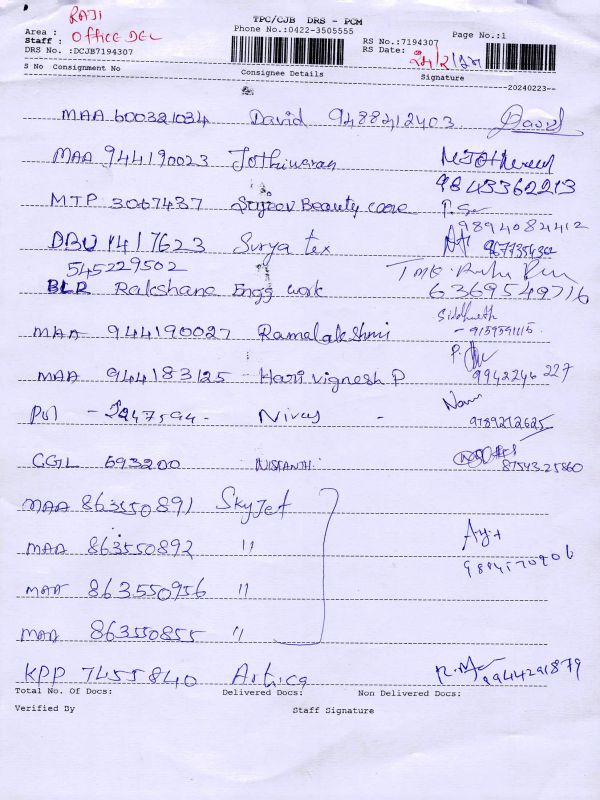 RAJI
TPC/CJB DRS - PCM
Area :
Phone No.:0422-3505555
Page No.:1
Staff : OFFICE DEL
RS No.:7194307
DRS No.:DCJB7194307
RS Date: 24/2/24
S No Consignment No Consignee Details Signature
--20240223--
MAA 600321034 David 9488412403 David
MAA 944190023 Jothiwaran
9843362213
MTP 3067437 Sajeev Beauty care
9894084412
DBU 1417623 Surya tex
545229502
BLR Rakshana Engg work 6369549716
MAA 944190027 Ramalakshmi Siddharth
- 9159591115.
MAA 944183125 - Hari vignesh P
9942246 227
Nivas -
9789272625
CGL 693200 NISTANTH:
87543 25860
MAA 863550891 SkyJet
MAA 863550892 "
MAA 863550956 "
MAA 863550855 "
KPP 7455840 Artica
9944291879
Total No. Of Docs: Delivered Docs: Non Delivered Docs:
Verified By Staff Signature